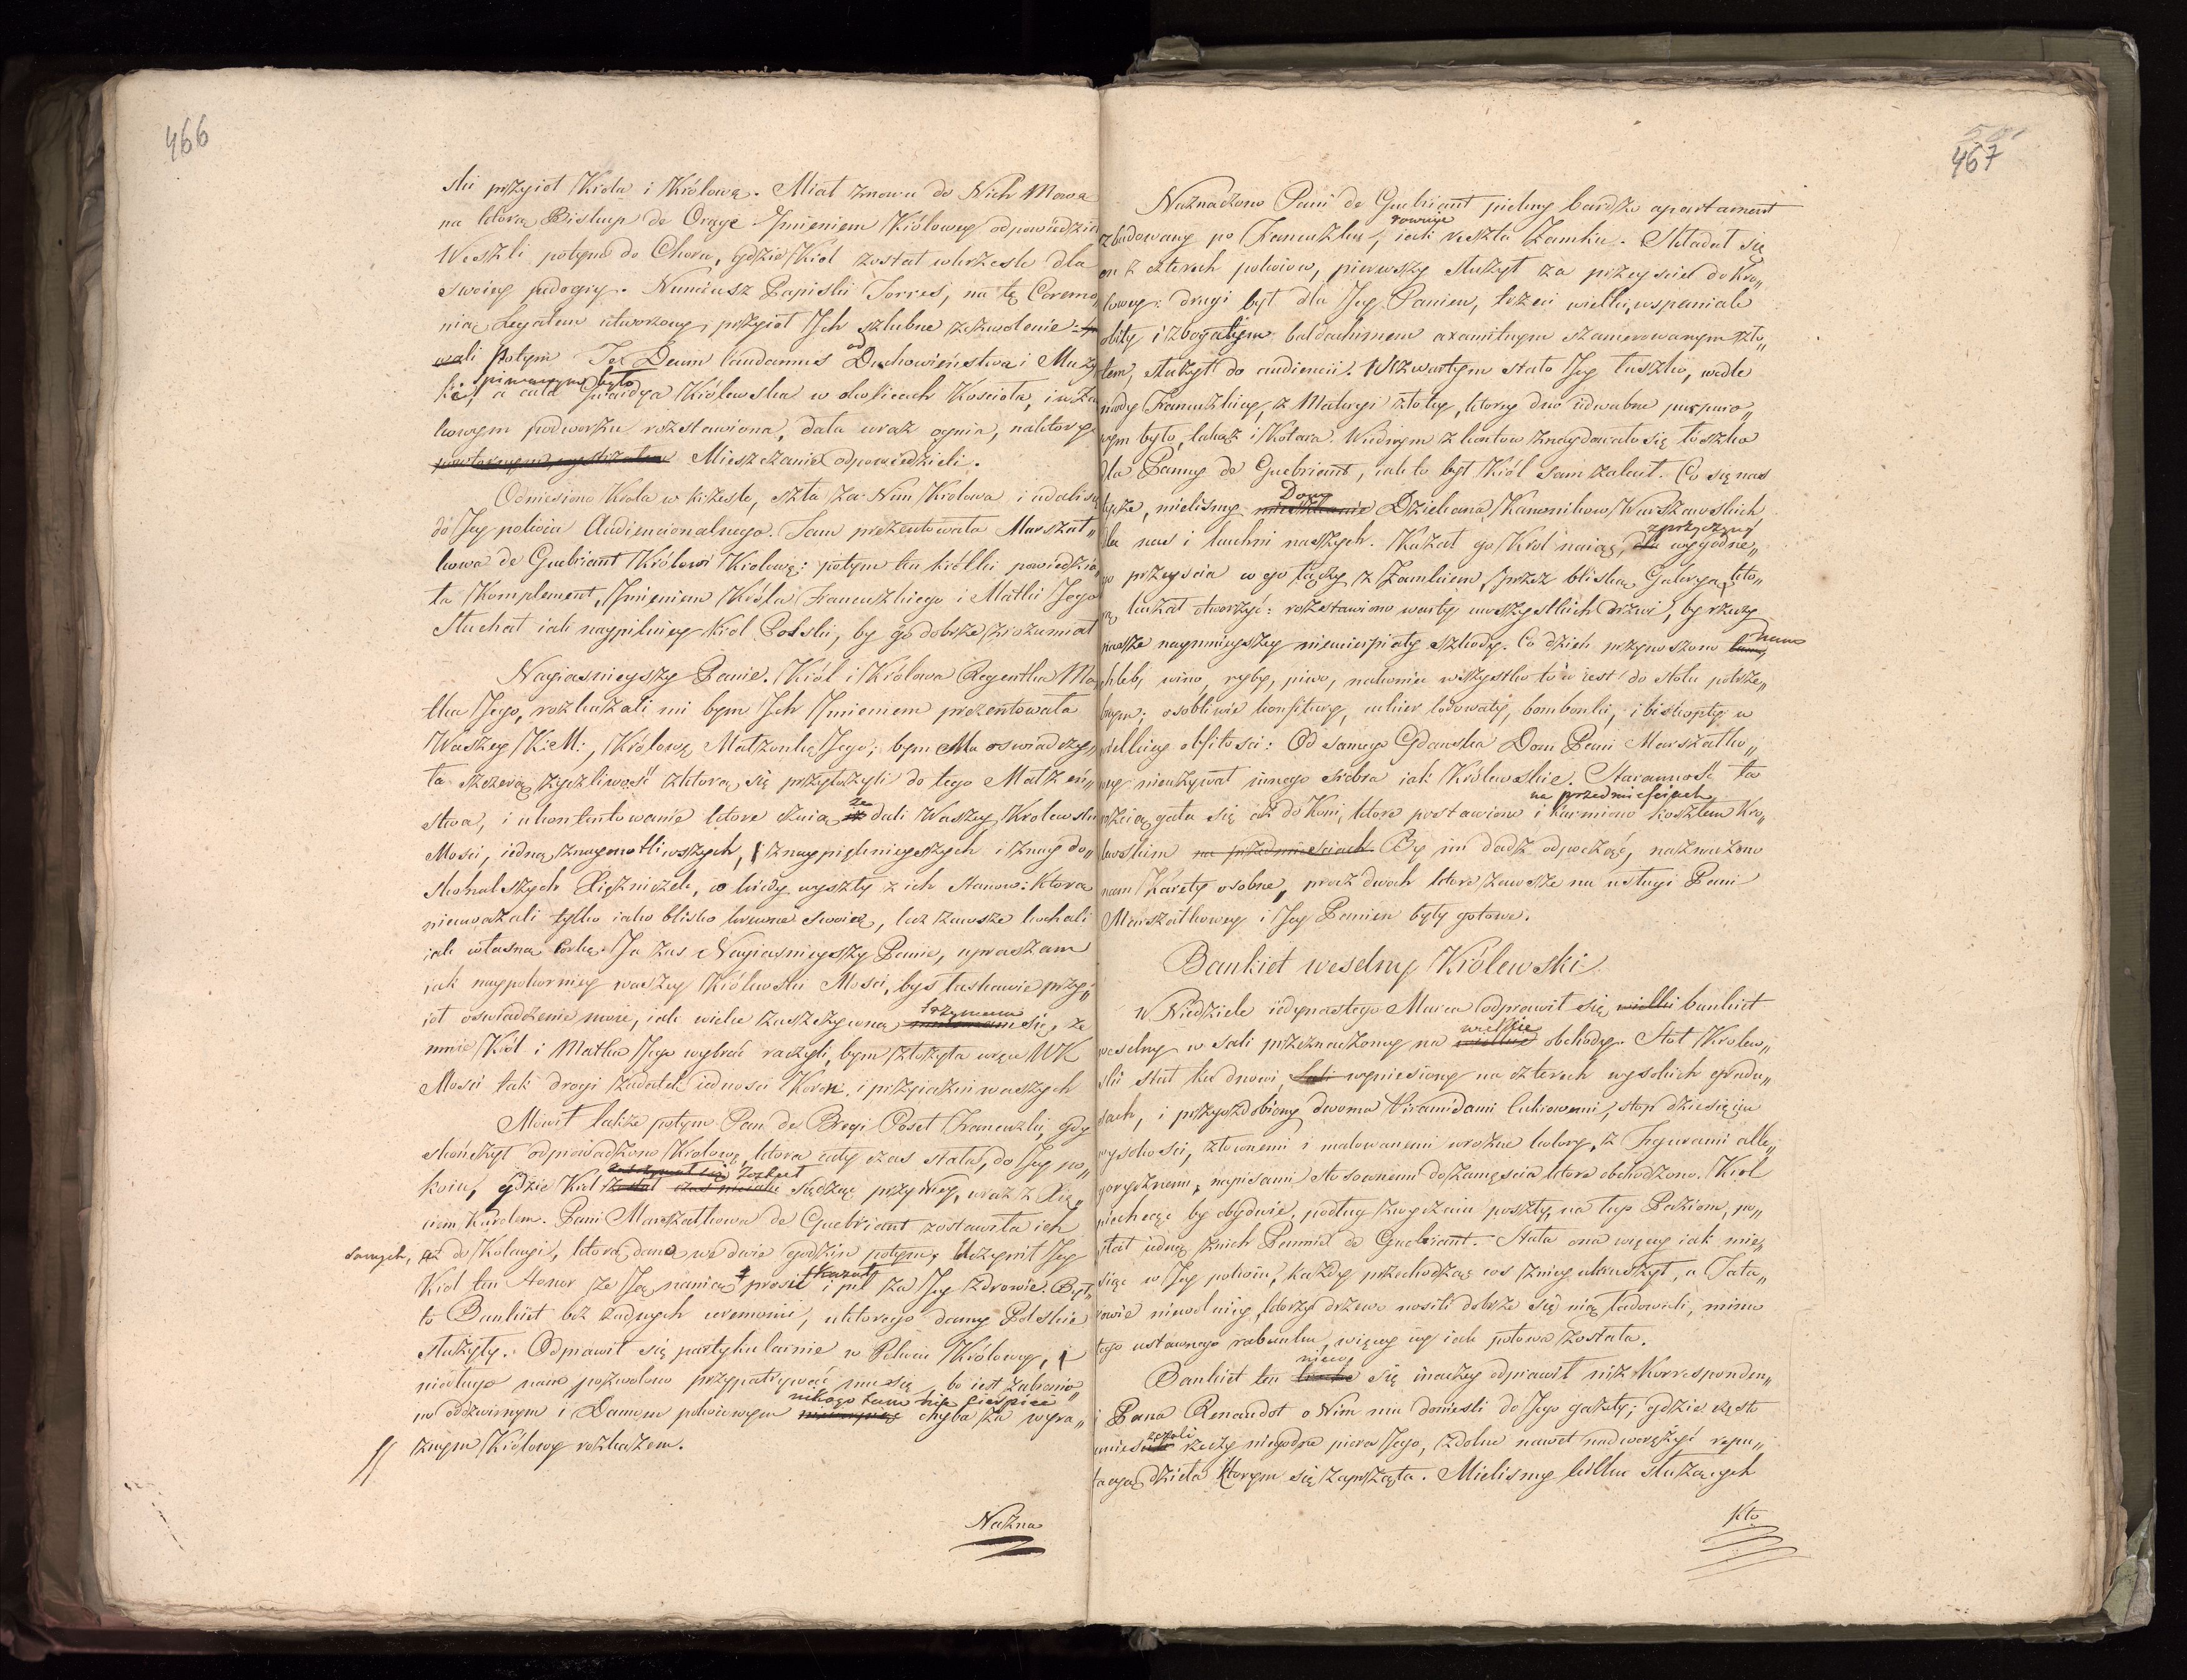 466
ski przyiot Króla i Królową. Miał znowu do Nich Mowę
na ktorą Biskup de Orage Jmieniem Królowey odpowiedział
Weszli potym do Choru, gdzie Krol został w krześle dla
swoiey podogry. Nunciusz Papiski Torres, na tę Ceremo„
nią Legatem utworzony, przyiął Jch szlubne zezwolenie:
potym Te Deum laudamus od Duchowieństwa i Muzy
ki śpiewanym było, a cała Gwardya Królewska w okolicach Kościoła, i w Zam
kowym podworzu rozstawiona, dała wraz ognia, na ktory
Mieszczanie odpowiedzieli.
Odniesiono Krola w krześle, szła za Nim Krolowa i udali się
do Jey pokoiu Audiencionalnego. Tam prezentowała Marszał„
kowa de Guebriant Królowi Krolowę: potym ten krótki powiedzia„
ła Komplement, Jmieniem Króla Francuzkiego i Matki Jego
Słuchał iak naypilniey Krol Polski, by go dobrze zrozumiał
Nayiasnieyszy Panie. Król i Królowa Regentka Ma
tka Jego, rozkazali mi bym Jch Jmieniem prezentowała
Waszey K: M:, Królowę Małzonkę Jego; bym Mu oswiadczy„
ła szczerą zyczliwość z ktorą się przyłożyli do tego Małżeń„
stwa, i ukontentowanie ktore czuią że dali Waszey Krolewski
Mosci, iedną z naycnotliwszych, z naypięknieyszych i z nay do„
skonalszych Xiężniczek, co kiedy wyszły z ich Stanow: Ktora
nieuważali tylko iako blisko krewne swoię, lecz zawsze kochali
iak własną Corkę. Ja zas Nayiasnieyszy Panie, upraszam
iak naypokorniey waszey Królewski Mosci, byś łaskawie przy„
iął oswiadczenie moie, iak wielce zaszczyconą trzymam się, że
mnie Król i Matka Jego wybrać raczyli, bym złożyła w ręce WK
Mosci tak drogi zadatek iedności Koron, i przyiaźni waszych
Mowił takze potym Pan de Bregi Poseł Francuzki, gdy
skończył odprowadzono Krolowę, ktora cały czas stała, do Jey po„
koiu, gdzie Krol został siedząc przy Niey, wraz z Xię„
ciem Karolem. Pani Marszałkowa de Guebriant zostawiła ich
samych, aż do Kolacyi, ktorą dano we dwie godzin potym. Uczynił Jey
Krol ten Honor że Ją na nią prosić kazał i pił za Jey zdrowie. Był„
to Bankiet bez żadnych ceremonii, u ktorego damy Polskie
służyły. Odprawił się partykularnie w Pokoiu Królowey,
niedługo nam pozwolono przypatrywać mu się, bo iest zabronio„
no oddzwirnym i Damom pokoiowym nikogo tam nie cierpieć chyba za wyra„
znym Królowy rozkazem.
Nazna
467
Naznaczono Pani de Guebriant piękny bardzo apartament
zbudowany po Francuzku, rownie iak reszta Zamku. Składał się
on z czterech pokoiow, pierwszy służył za przeyscie do Kró„
lowey: drugi był dla Jey Panien, trzeci wielki, wspaniale
obity i z bogatym baldachinem axamitnym szamerowanym zło„
tem, służył do audiencii. W czwartym stało Jey łuszko, wedle
mody Francuzkiey, z Materyi złotey, ktorey dno iedwabne purpuro„
wym było, takaż i Kotara. W iednym z kontow znaydowało się łoszko
dla Panny de Guebriant, iak to był Król sam zalecił. Co się nas
tycze, mielismy Dom Dziekana Kanonikow Warszawskich
dla nas i kuchni naszych. Kazał go Krol naiąć, z przyczyny wygodne„
go przeyscia co go łączy z Zamkiem, przez bliską Galeryą, kto„
rą kazał otworzyć: rozstawiono warty u wszystkich drzwi, by rzeczy
nasze naymnieyszey niecierpiały szkody. Co dzień przynoszono nam
chleb, wino, ryby, piwo, nakoniec wszystko to co iest do stołu potrze„
bnym; osobliwie konfitury, cukier lodowaty, bombonki, i biskopty w
wielkiey obfitosci: Od samego Gdanska Dom Pani Marszałko„
wey nieużywał innego srebra iak Królewskie. Staranność ta
rozciągała się aż do Koni, ktore postawiono na przedmieściach i karmiono kosztem Kró„
lewskim By im dadź odpocząć, naznaczono
nam Karety osobne, procz dwoch ktore zawsze na usługi Pani
Marszałkowey i Jey Panien były gotowe.
Bankiet weselny Królewski
W Niedziele iedynastego Marca odprawił się bankiet
weselny w sali przeznaczoney na wielkie obchody. Stoł Krolew„
ski stał ku drzwi, wyniesiony na czterech wysokich gradu„
sach, i przyozdobiony dwoma Piramidami Cukrowemi, stop dziesięciu
wysokosci, złoconemi i malowanemi w rożne kolory, z Figurami alle„
gorycznemi, napisami stosownemi do zamęscia ktore obchodzono. Krol
niechcąc by obydwie, podług zwyczaiu poszły na łup Paziom, po„
słał iednę z nich Pannie de Guebriant. Stała ona więcey iak mie„
siąc w Jey pokoiu, każdy przechodząc cos z niey ukruszył, a Tata„
rowie niewolnicy, ktorzy drzewo nosili dobrze się nią ładowali, mimo
tego ustawnego rabunku, więcey iey iak połowa została.
Bankiet ten nieco się inaczey odprawił niż Korresponden„
i Pana Renaudot o Nim mu doniesli do Jego gazety; gdzie często
umieszczali rzeczy niegodne piora Jego, zdolne nawet nadwerężyć repu„
tacyą dzieła ktorym się zaprząta. Mielismy kilku służących
Kto